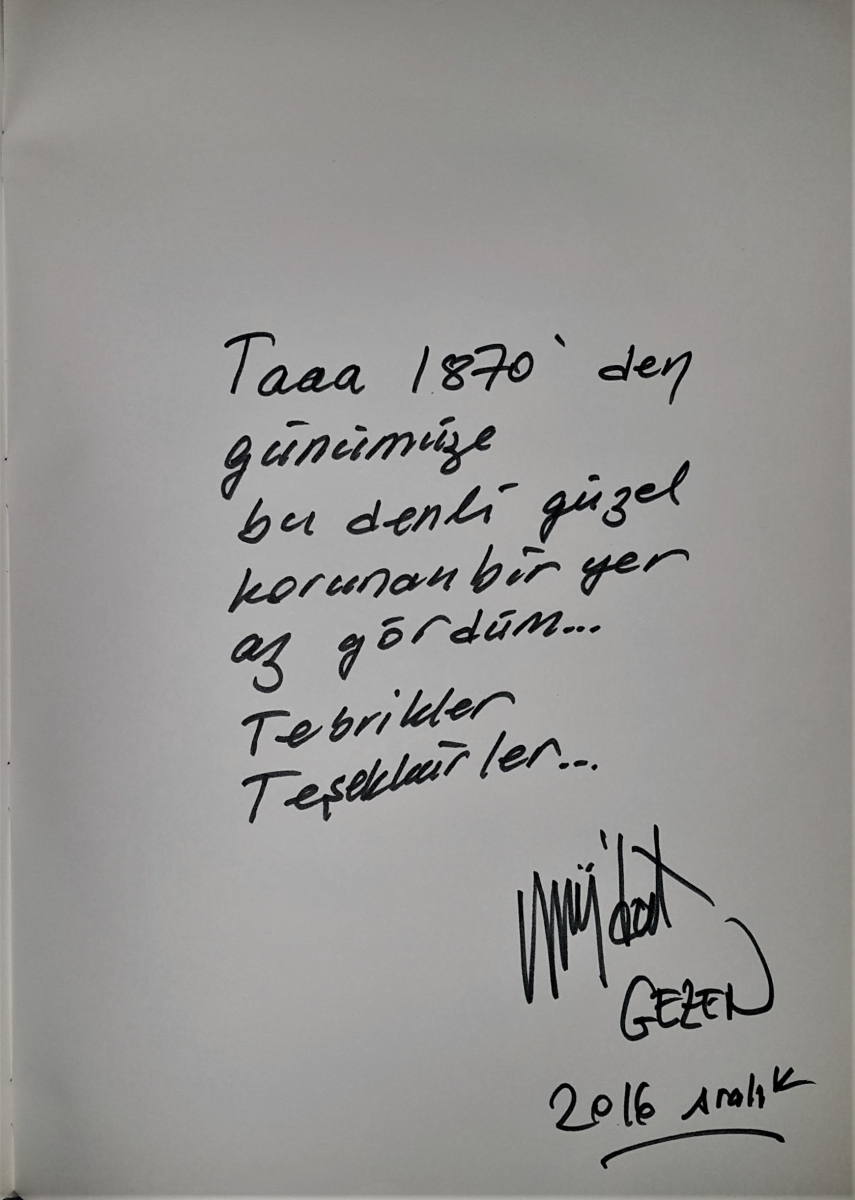 Taaa 1870' den
günümüze
bu denli güzel
korunan bir yer
az gördüm...
Tebrikler
Teşekkürler...
Müjdat
GEZEN
2016 Aralık